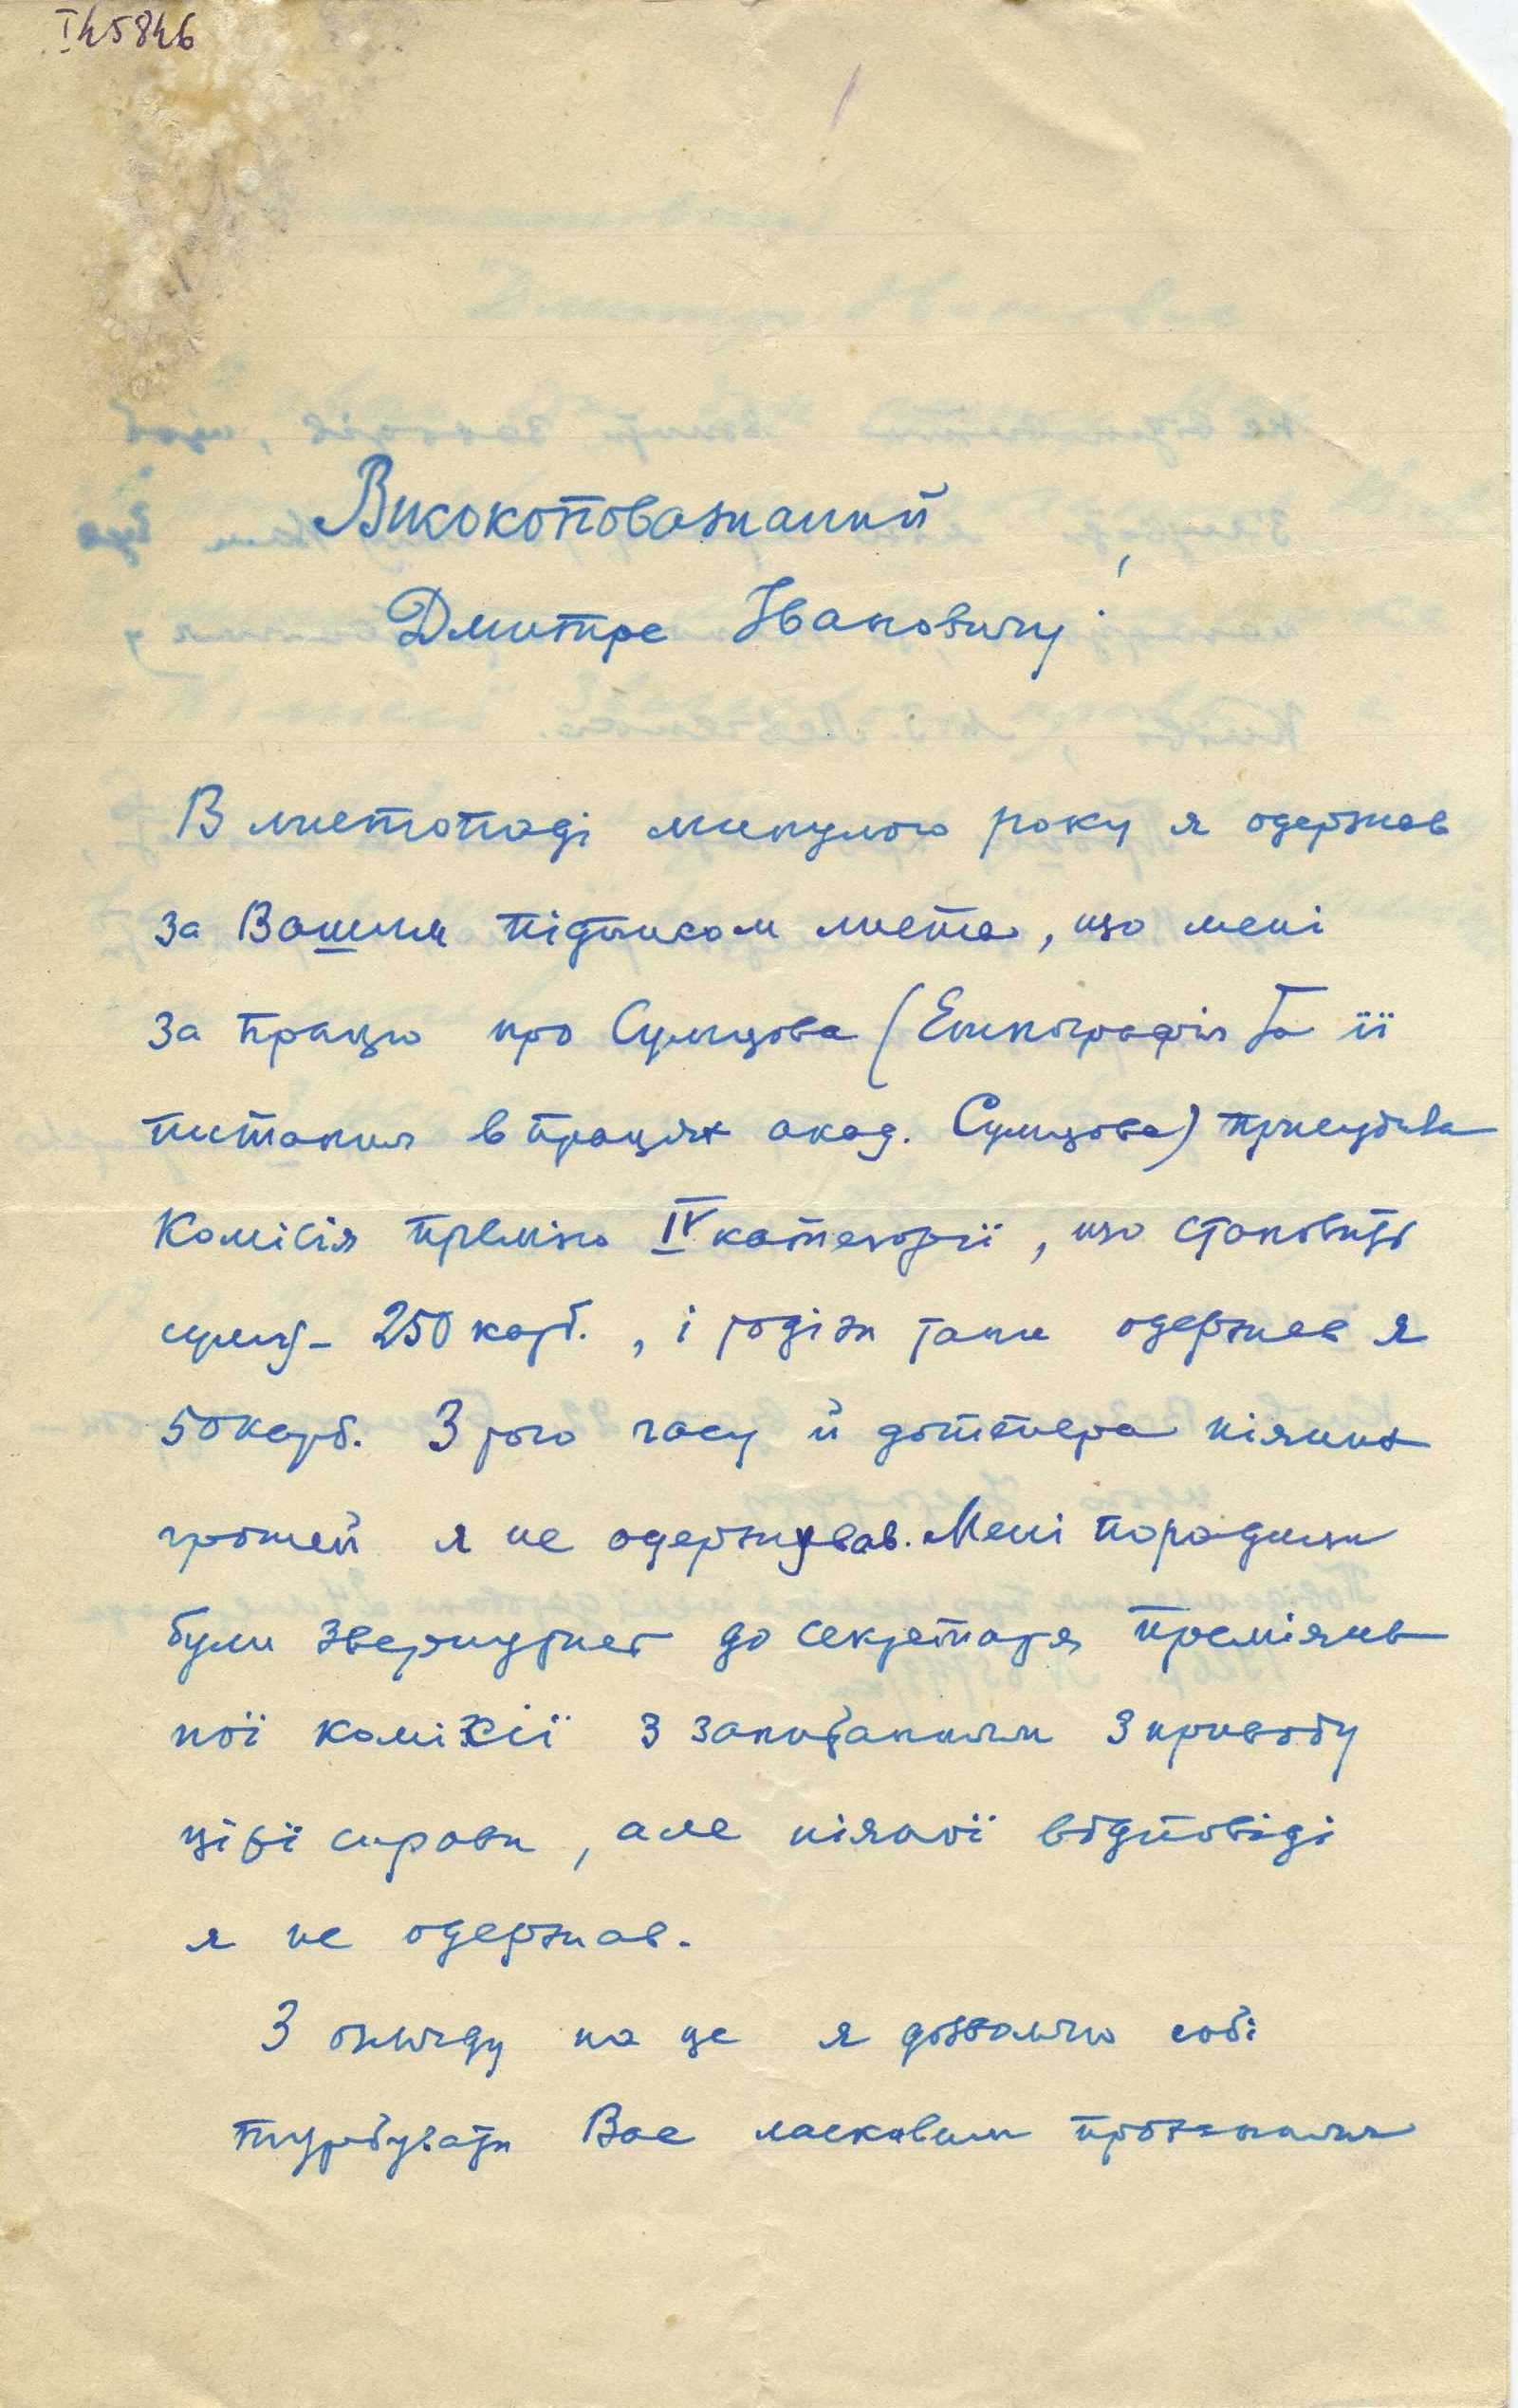 I 45846
Високоповажаний
Дмитре Івановичу!
В листопаді минулого року я одержав
за Вашим підписом листа, що мені
за працю про Сумцова (Етнографія та її
питання в працях акад. Сумцова) присудила
Комісія премію IV категорії, що становить
суму - 250 карб., і тодіж таки одержав я
50 карб. З того часу й дотепера ніяких
грошей я не одержував. Мені порадили
були звернутись до секретаря преміяль
ної комісії з запитанням з приводу
цієї справи, але ніякої відповіді
я не одержав.
З огляду на це я дозволяю собі
турбувати Вас ласкавим проханням